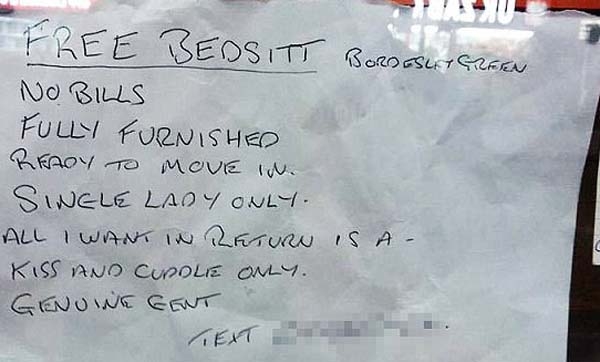 FREE BEDSITT BORDESLEY GREEN
NO BILLS
FULLY FURNISHED
READY TO MOVE IN.
SINGLE LADY ONLY.
ALL I WANT IN RETURN IS A -
KISS AND CUDDLE ONLY.
GENUINE GENT
TEXT